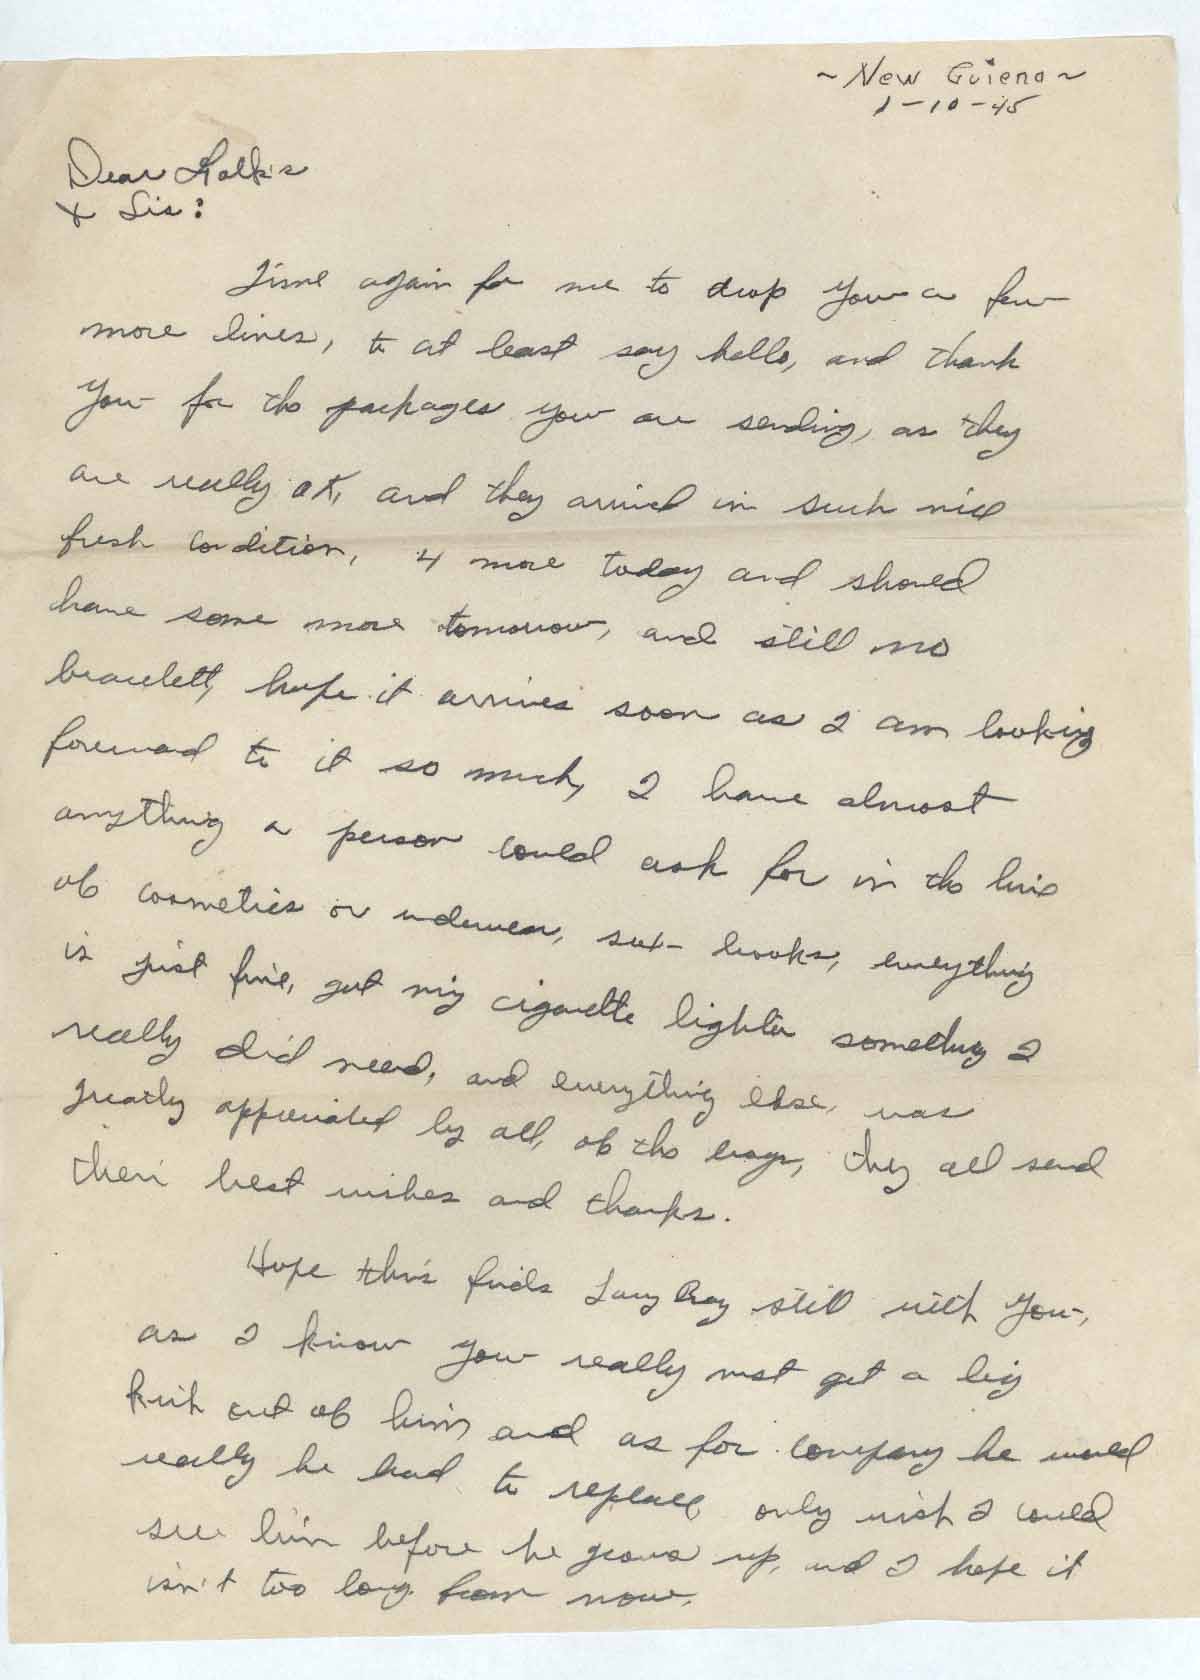 ~ New Guiena ~
1-10-45
Dear Folk's
& Sis:
Time again for me to drop you a few
more lines, to at least say hello, and thank
you for the packages you are sending, as they
are really OK, and they arrived in such nice
fresh condition, 4 more today and should
have some more tomorrow, and still no
bracelett, hope it arrives soon as I am looking
foreward to it so much, I have almost
anything a person could ask for in the line
of cosmetics or underwear, books, everything
is just fine, got my cigarette lighter something I
really did need, and everything else, was
greatly appreciated by all, of the boys, they all send
their best wishes and thanks.
Hope this finds Larry Ray still with you,
as I know you really must get a big
kick out of him and as for company he would
really be hard to replace, only wish I could
see him before he grows up, and I hope it
isn't too long from now.